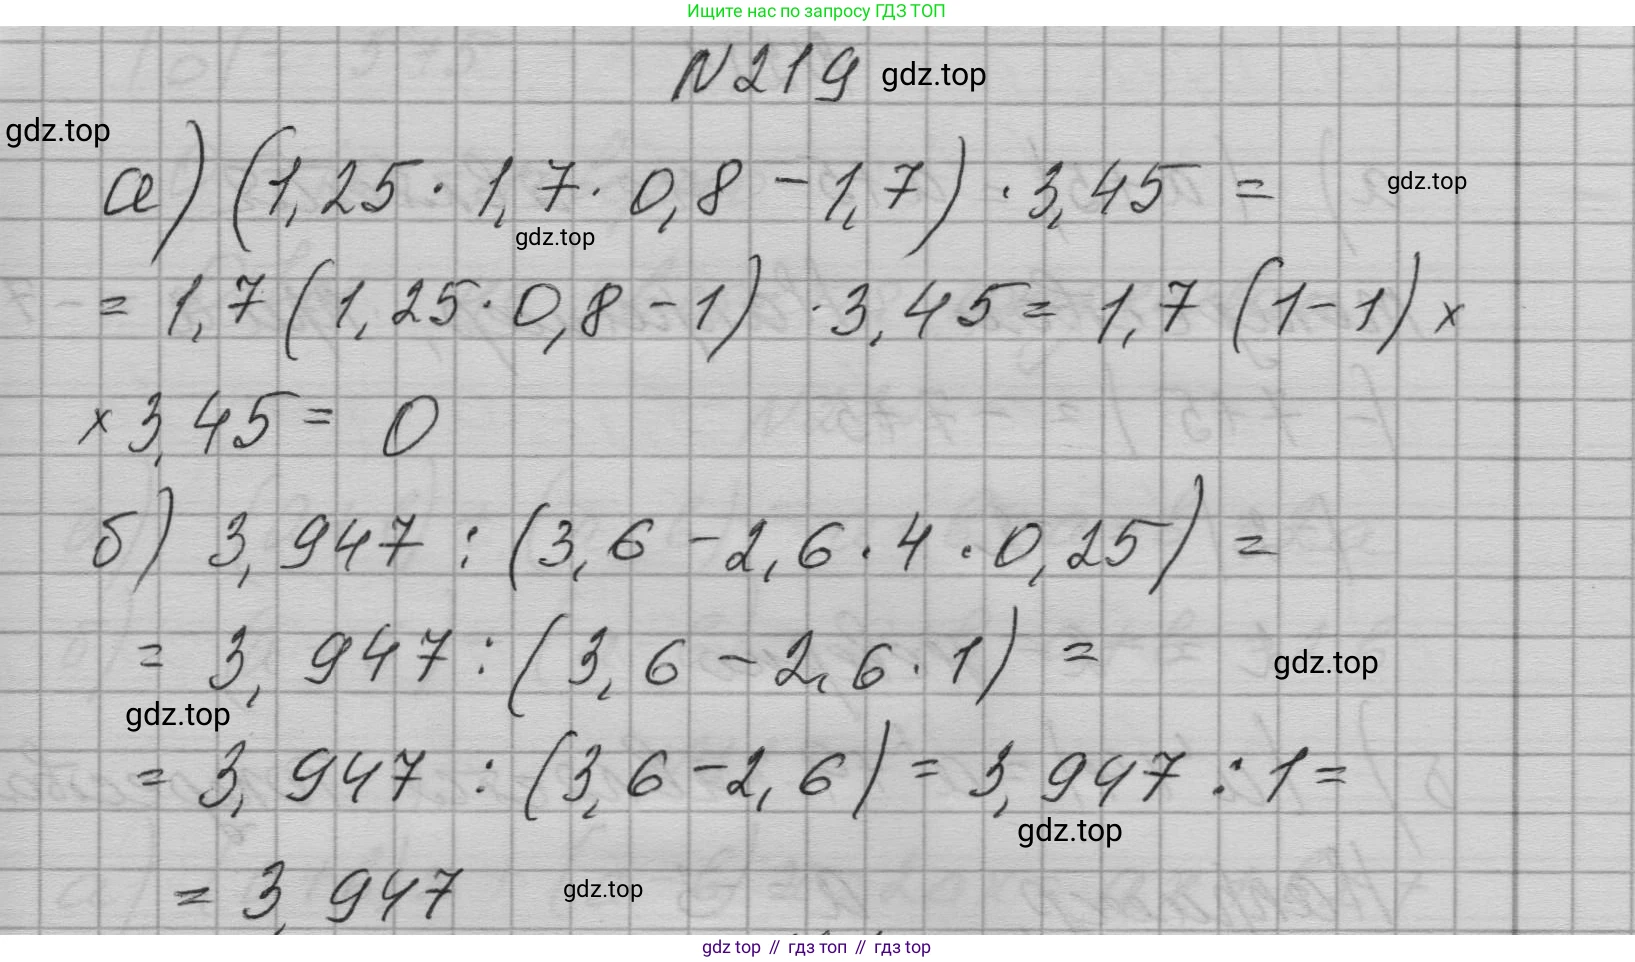 Ищите нас по запросу ГДЗ ТОП
N219 gdz.top
gdz.top
а) (1,25 · 1,7 · 0,8 - 1,7) · 3,45 = gdz.top
gdz.top
= 1,7 (1,25 · 0,8 - 1) · 3,45 = 1,7 (1 - 1) ×
× 3,45 = 0
б) 3,947 : (3,6 - 2,6 · 4 · 0,25) =
= 3,947 : (3,6 - 2,6 · 1) = gdz.top
gdz.top
= 3,947 : (3,6 - 2,6) = 3,947 : 1 =
gdz.top
= 3,947 gdz.top
gdz top // гдз топ // гдз top